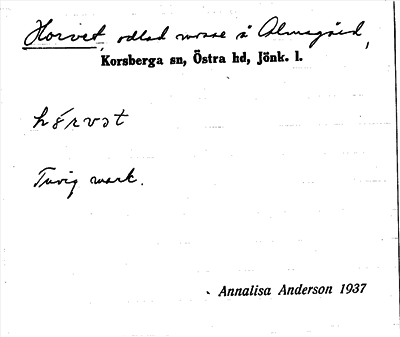 Horvet, odlad mosse å Almsgård,
Korsberga sn, Östra hd, Jönk. l.
hórvət
Tuvig mark.
Annalisa Anderson 1937